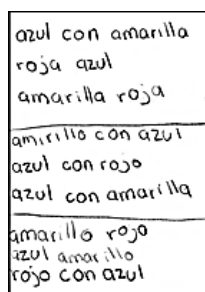 azul con amarilla
roja azul
amarilla roja
amirillo con azul
azul con rojo
azul con amarilla
amarillo rojo
azul amarillo
rojo con azul